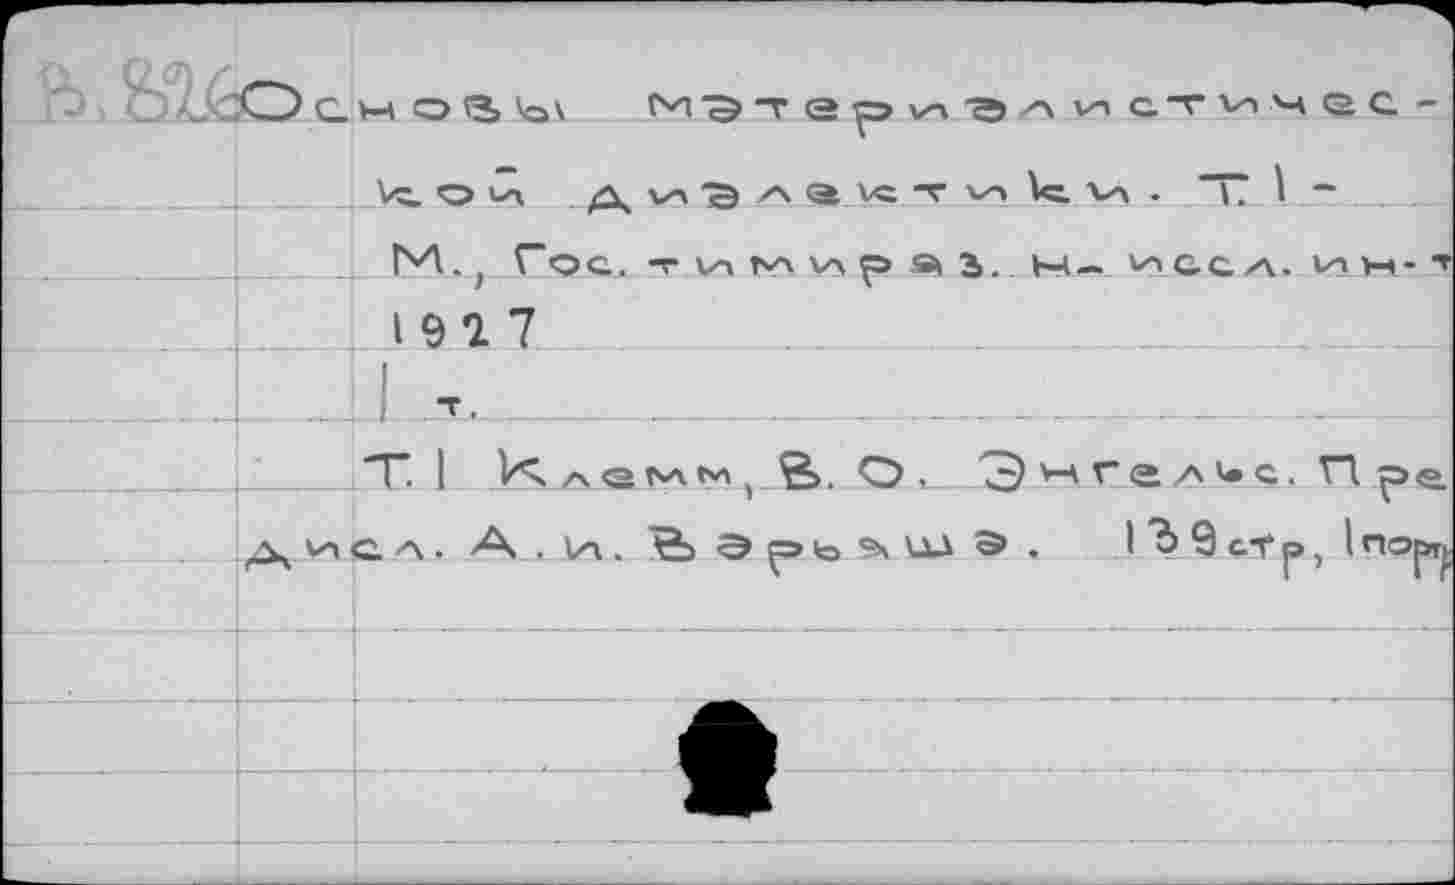 В.826 Основы материалистичес-
кой диалектики. Т. 1 -
М., Гос. тимиряз. н- иссл. ин-т
1927
1 т.
Т. 1 Клемм, В. О. Энгельс. Пре
дисл. А. И. Варьяша. 139 стр, 1 порт